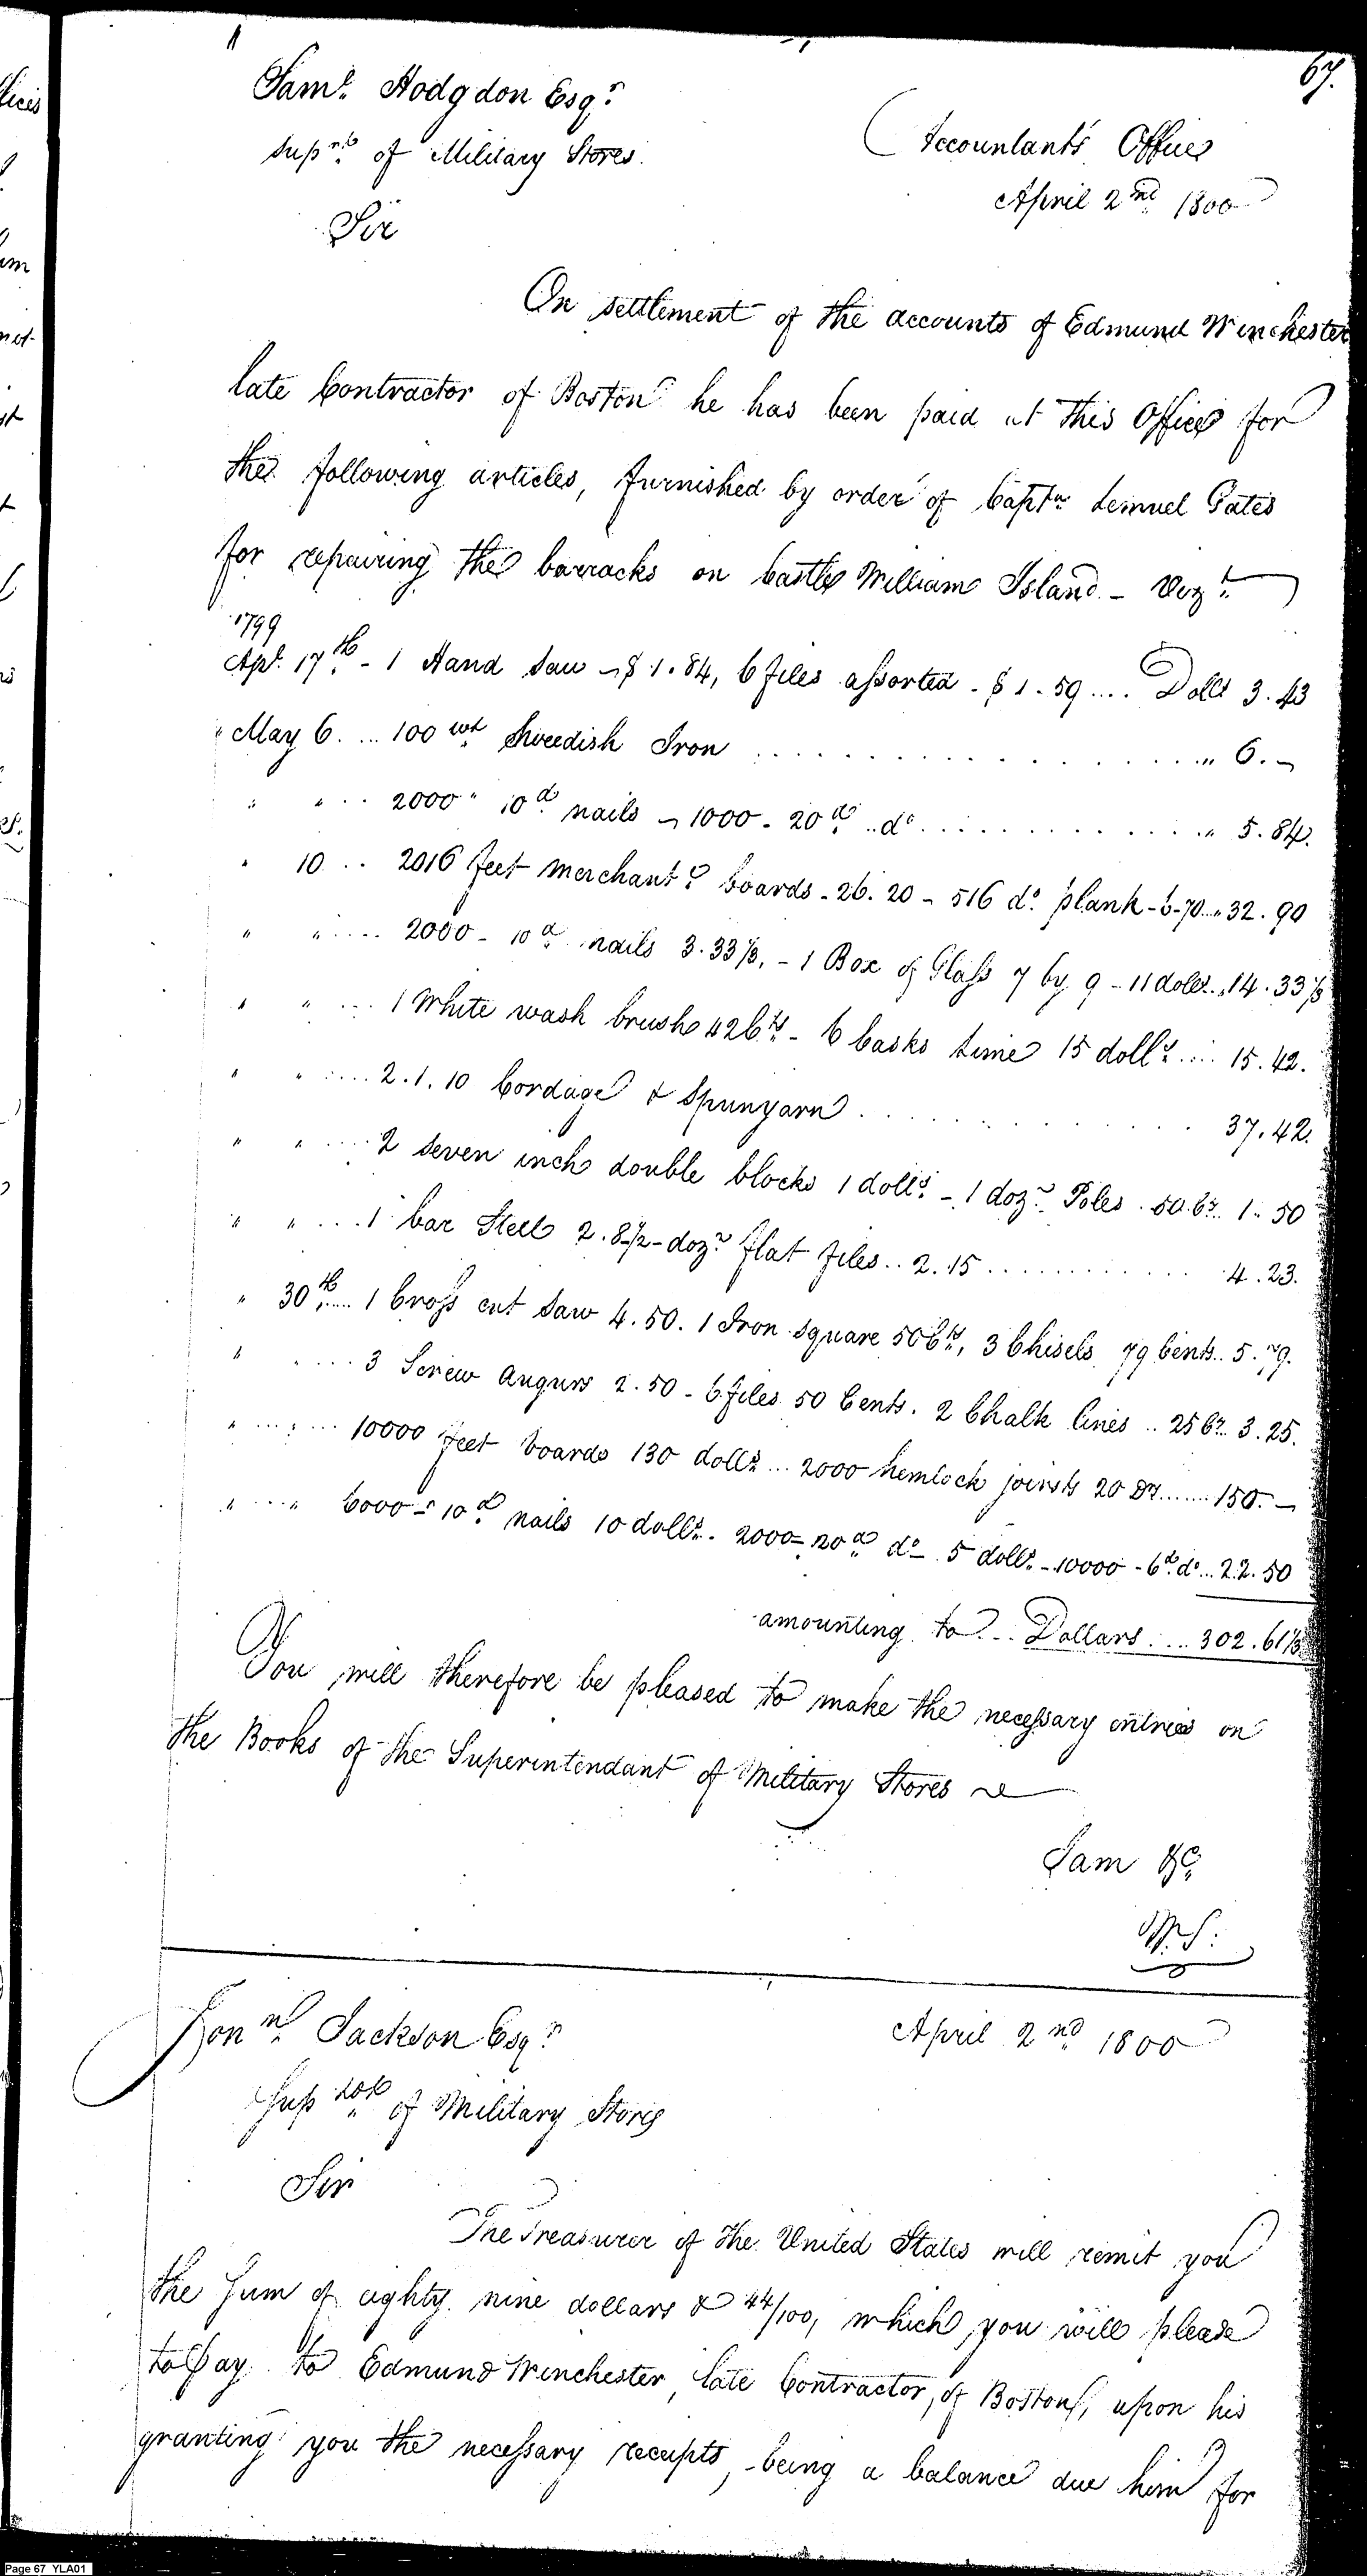 67.
Saml. Hodgdon Esqr.
Supnt. of Military Stores.
Accountants Office
April 2nd 1800
Sir
On settlement of the accounts of Edmund Winchester
late Contractor of Boston he has been paid at this Office for
the following articles, furnished by order of Captn. Lemuel Gates
for repairing the barracks on Castle William Island - Vizt.
1799
Apl. 17th - 1 Hand Saw - $1.84, 6 files assorted - $1.59 .... Dolls 3.43
" May 6 ... 100 wt. Sweedish Iron .................. " 6. -
" " ... 2000 " 10d nails - 1000 - 20d .. do ............. " 5.84.
" 10 ... 2016 feet merchante. boards - 26.20 - 516 do. plank - 6-70 .. " 32.90
" " ..... 2000 - 10d nails 3.33 1/3, - 1 Box of Glass 7 by 9 - 11 dolls .. " 14.33 1/3
" " .... 1 White wash brush 42 Cts. - 6 Casks Lime 15 dolls ..... 15.42.
" " ..... 2.1.10 Cordage & Spunyarn .............. 37.42.
" " ..... 2 seven inch double blocks 1 dolls. - 1 dozn. Poles . 50 Cts. 1. 50
" " .... 1 bar Steel 2.8 - 1/2 - dozn. flat files .. 2.15 ............ 4.23.
" 30th .... 1 Cross cut Saw 4.50. 1 Iron Square 50 Cts, 3 Chisels 79 Cents .. 5.79.
" .... 3 Screw augurs 2.50 - 6 files 50 Cents. 2 Chalk lines .. 25 Cts. 3.25.
" ... " ... 10000 feet boards 130 dolls ... 2000 hemlock joists 20 Drs ...... 150. -
" .... " 6000 - 10d nails 10 dolls. 2000 - 20d do - 5 dolls - 10000 - 6d. do ... 22.50
amounting to ... Dollars .... 302.61 1/3
You will therefore be pleased to make the necessary entries on
the Books of the Superintendant of Military Stores
I am &c.
W.S:
Jonn. Jackson Esqr.
April 2nd 1800
of Military Stores
Sir
The Treasurer of the United States will remit you
the Sum of eighty nine dollars & 44/100, which you will please
to Pay to Edmund Winchester, late Contractor, of Boston, upon his
granting you the necessary receipts, being a balance due him for
Page 67 YLA01